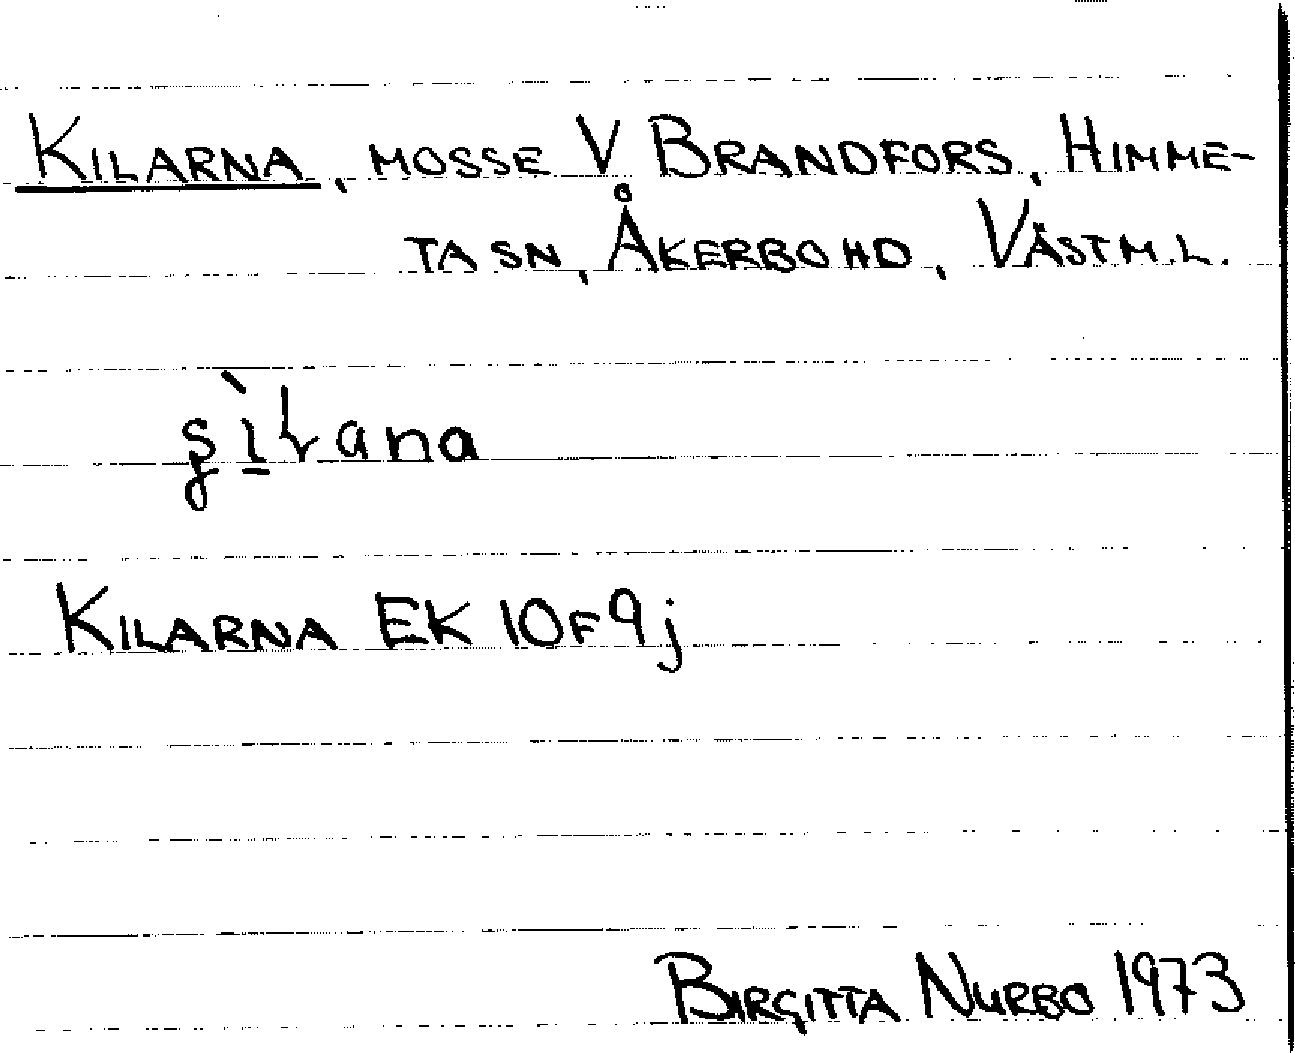 KILARNA, MOSSE V BRANDFORS, HIMME-
TA SN, ÅKERBO HD, VÄSTM.L.
KILARNA EK 10F9j
BIRGITTA NURBO 1973